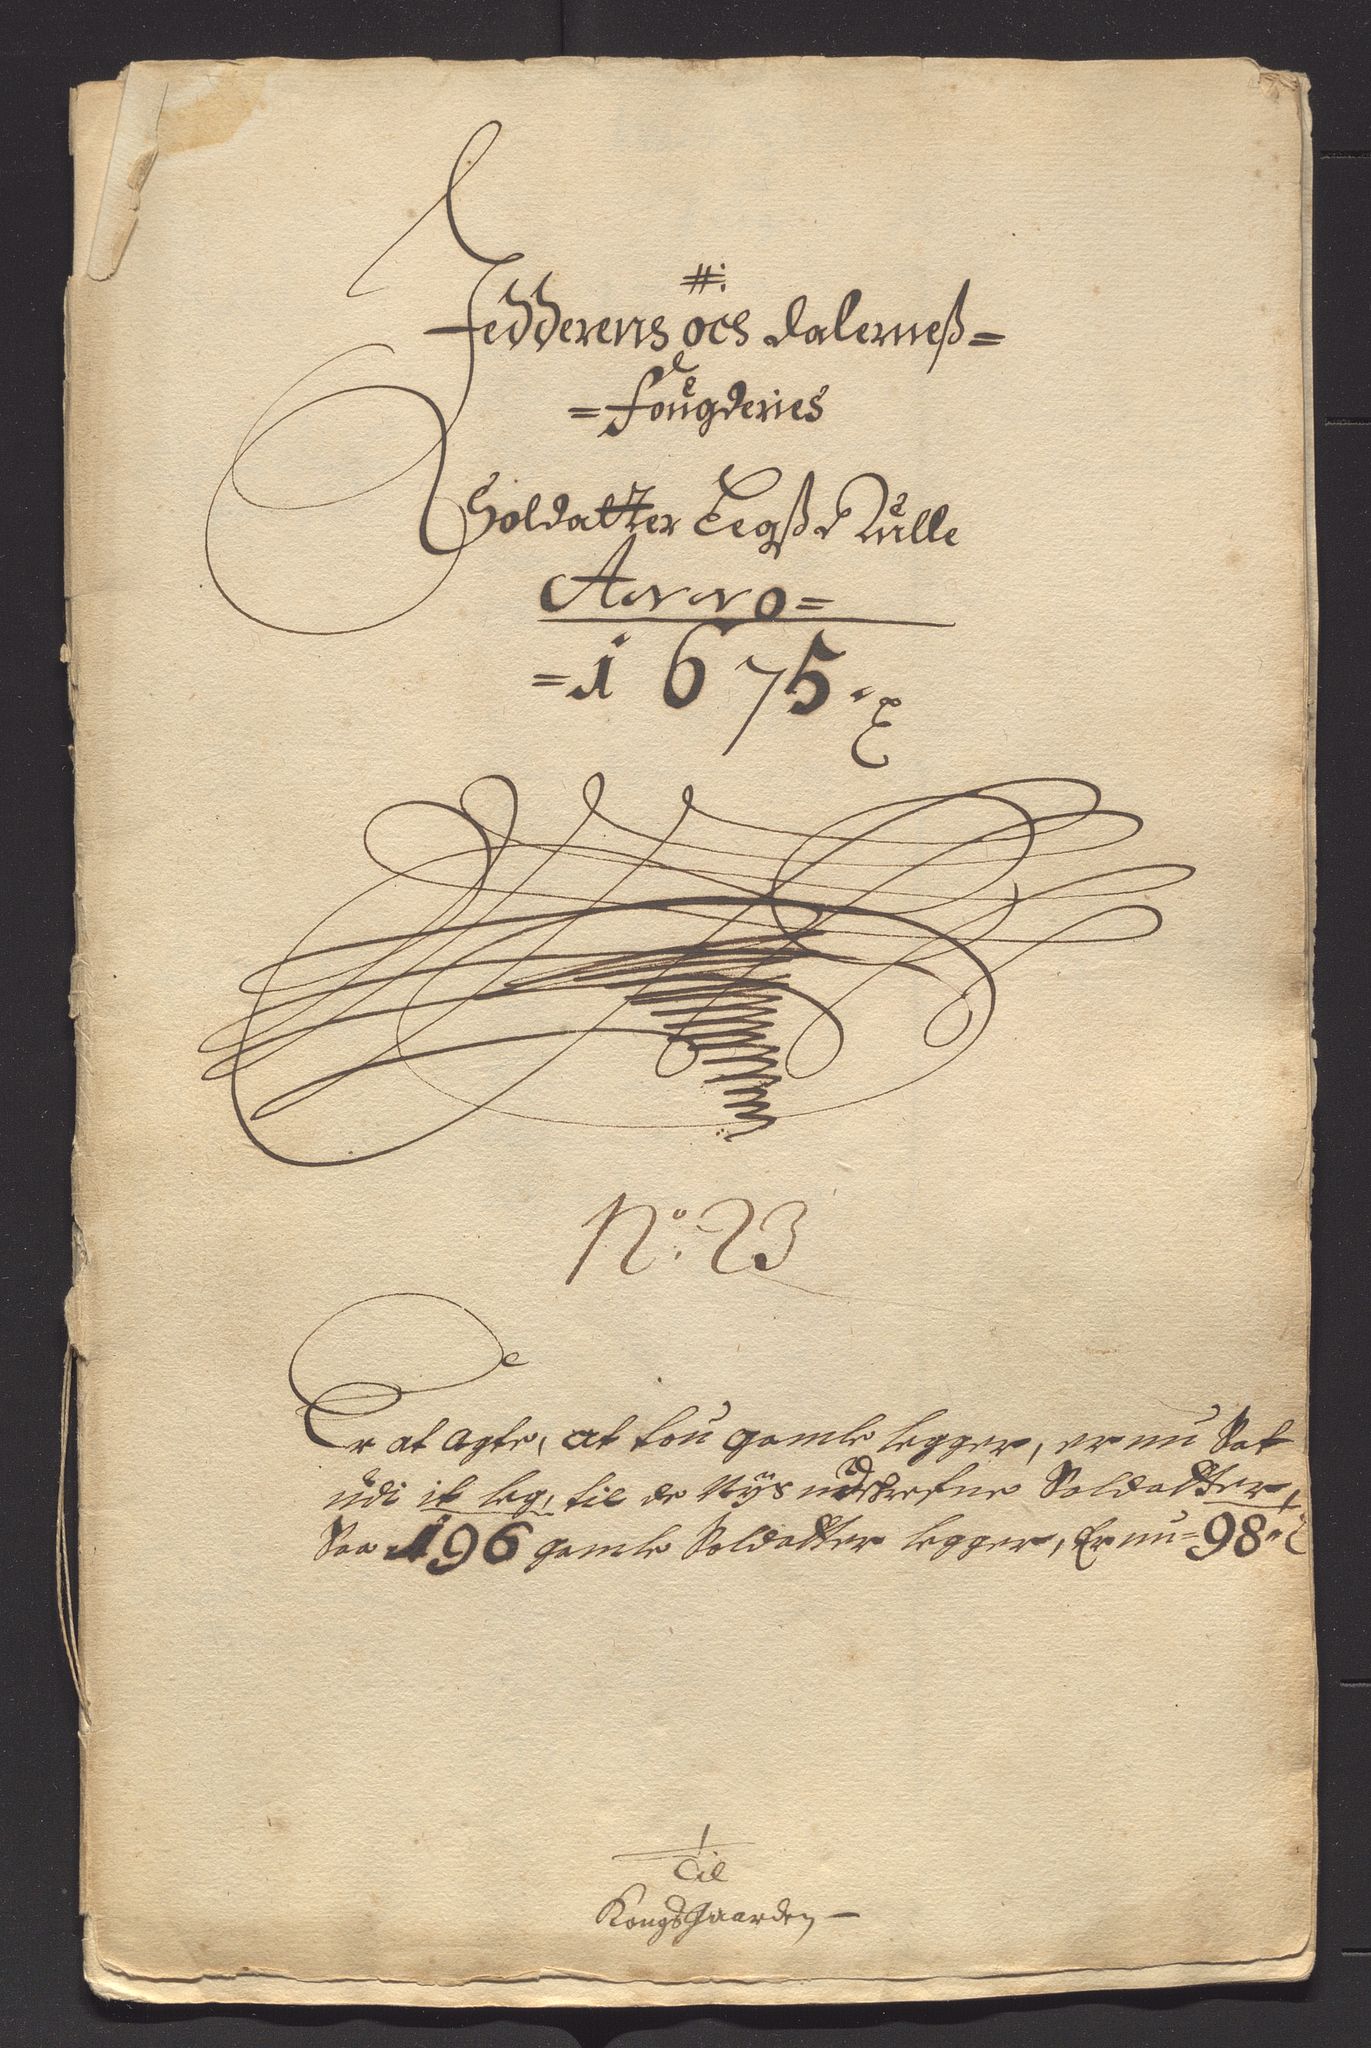 #:
Jedderens och dalerneß=
=fougderies
Soldatter Legß Rulle
Anno=
=1675.
No: 23
Er at agte, at tou gamle legger, er nu Sat
udi it leg, til de Nÿs udschrefne Soldatter,
Saa 196 gamle Soldatter legger, Er nu=98
1
Til
Kongsgaarden—